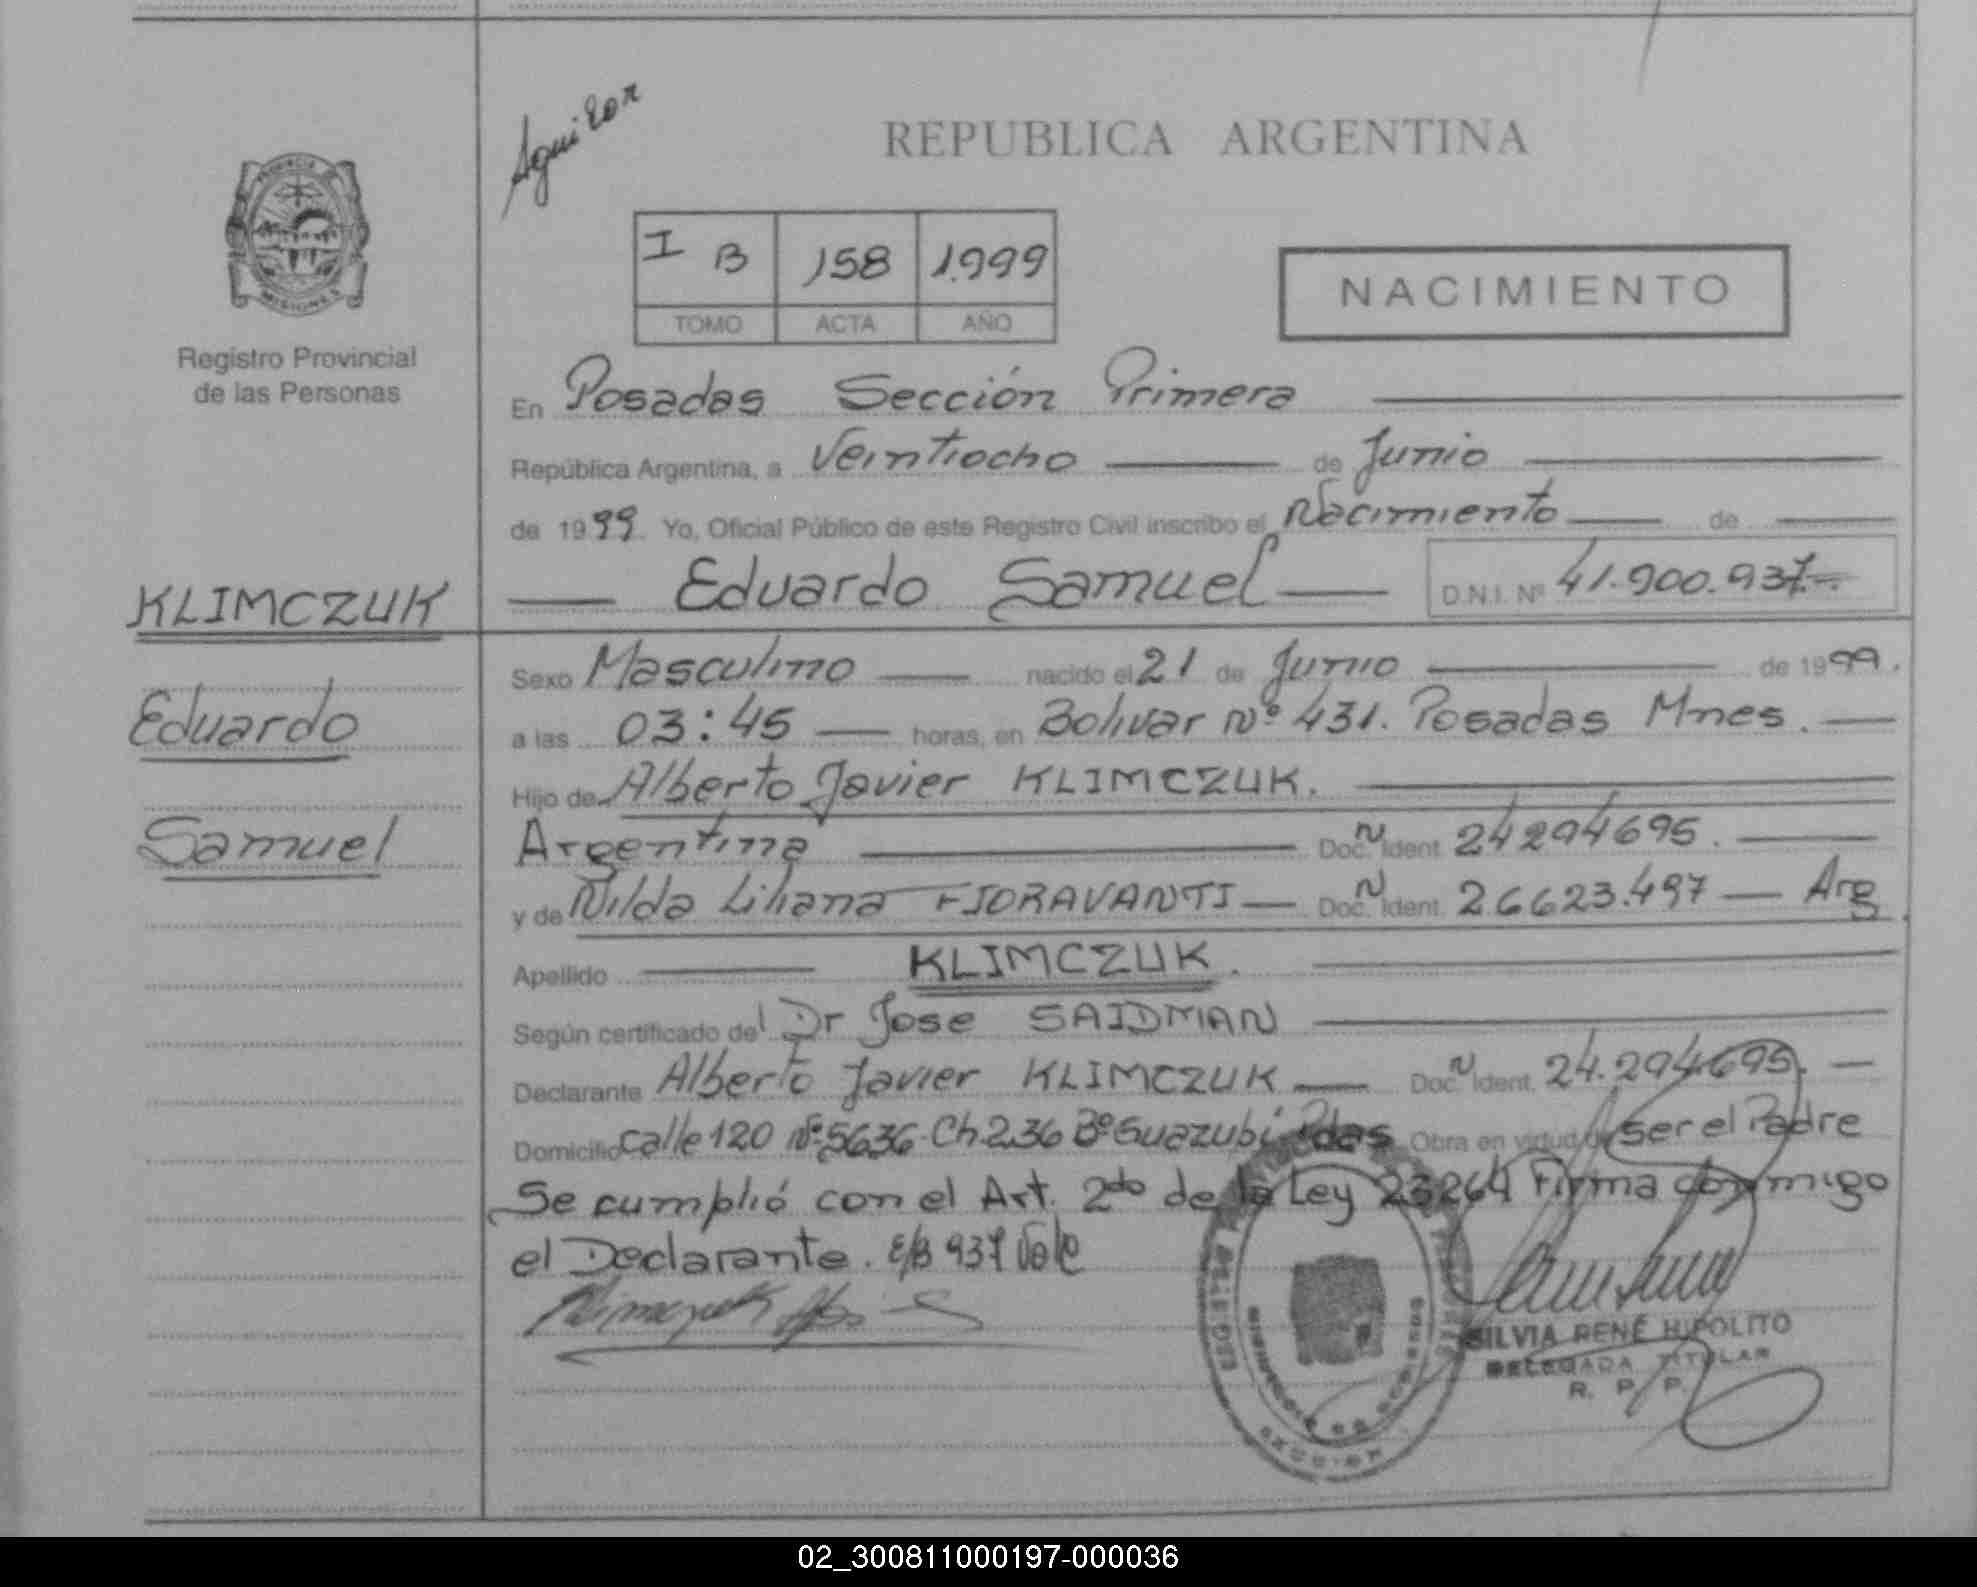 Aguilar
REPUBLICA ARGENTINA
I B 158 1.999
TOMO ACTA AÑO
NACIMIENTO
PROVINCIA
MISIONES
Registro Provincial
de las Personas
En Posadas Sección Primera
República Argentina, a Veintiocho de Junio
de 1999. Yo, Oficial Público de este Registro Civil inscribo el Nacimiento de
Eduardo Samuel D.N.I. Nº 41.900.937.-
KLIMCZUK
Eduardo
Samuel
Sexo Masculino nacido el 21 de Junio de 1999.
a las 03:45 horas, en Bolivar Nº 431. Posadas Mnes.
Hijo de Alberto Javier KLIMCZUK.
Argentina Doc. Ident. 24294695.
y de Nilda Liliana FIORAVANTI Doc. Ident. 26623.497 Arg
Apellido KLIMCZUK.
Según certificado del Dr Jose SAIDMAN
Declarante Alberto Javier KLIMCZUK Doc. Ident. 24.294695.
Domicilio calle 120 Nº 5636 Ch.236 Bº Guazubi Pdas Obra en virtud de ser el Padre
Se cumplió con el Art. 2do de la Ley 23264 Firma conmigo
el Declarante. E/B 937 Vale
SILVIA RENÉ HIPOLITO
DELEGADA TITULAR
R. P. P.
02_300811000197-000036